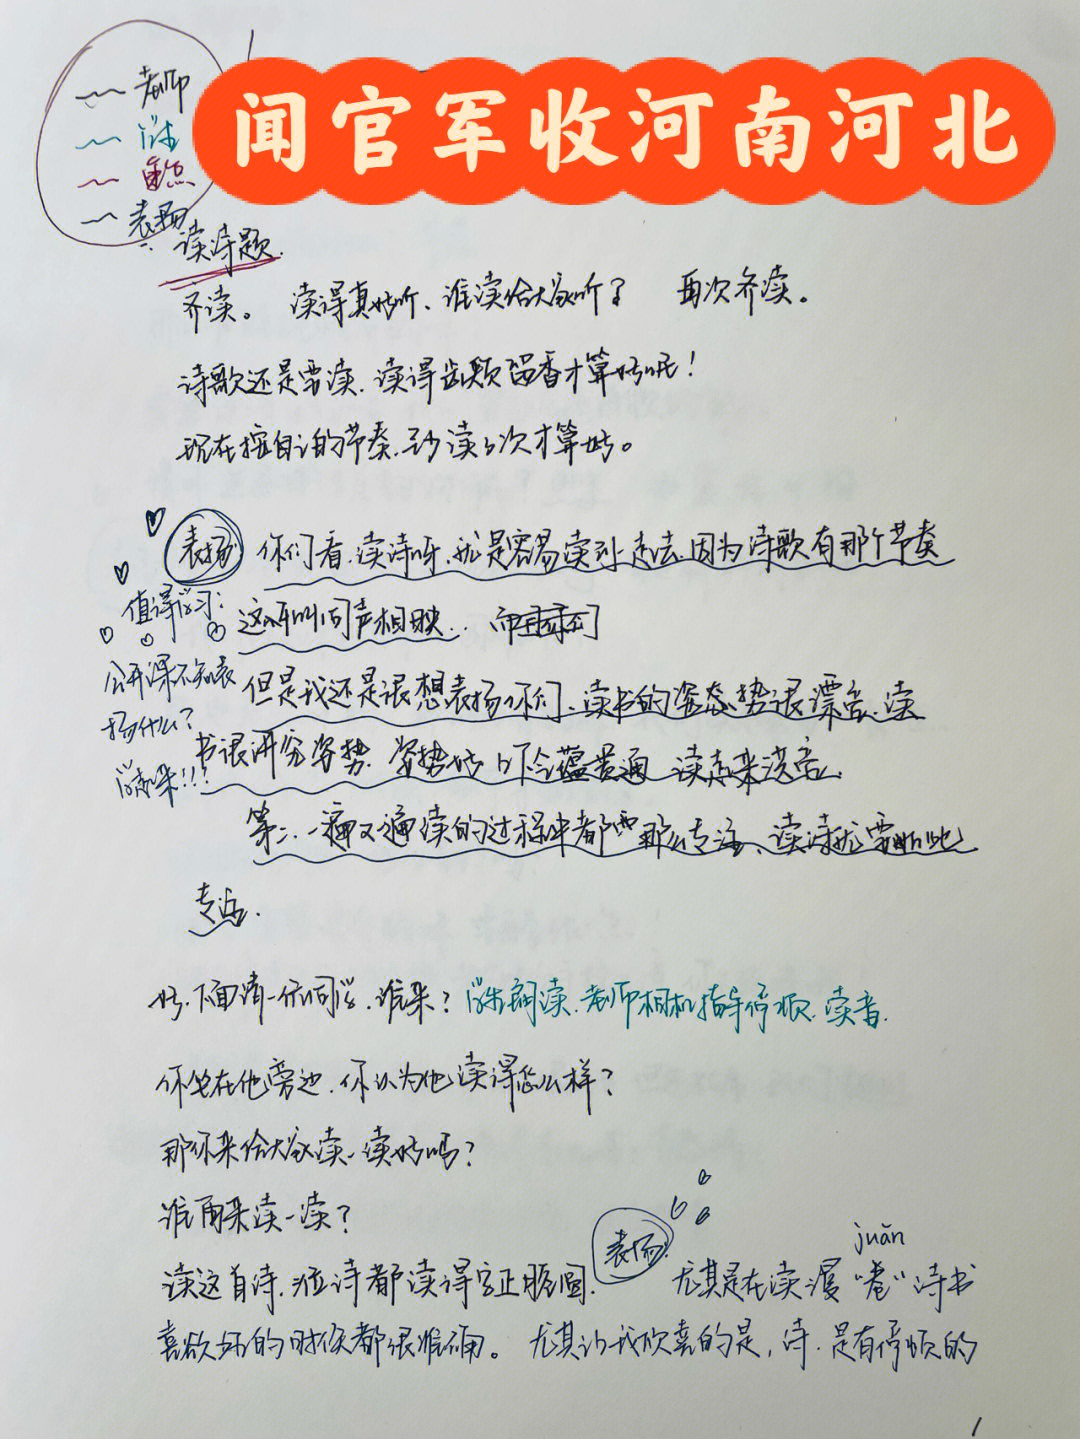 闻官军收河南河北
老师
学生
重点
表扬
读诗题.
齐读。 读得真好听、谁读给大家听? 再次齐读。
诗歌还是要读.读得齿颊留香才算好呢!
现在按自己的节奏.至少读3次才算好。
表扬
你们看.读诗呀.就是容易读到一起去.因为诗歌有那个节奏
值得学习:
这叫同声相映..
公开课不知表
扬什么?
学起来!!!
但是我还是很想表扬你们、读书的姿态、势很漂亮.读
书很讲究姿势.姿势好 贯通 读起来洪亮.
第二.一遍又一遍读的过程中都要那么专注、读诗就要如此
专注.
好.下面请一位同学.谁来?学生朗读.老师相机指导停顿.读音.
你坐在他旁边.你认为他读得怎么样?
那你来给大家读一读好吗?
谁再来读一读?
表扬
juǎn
读这首诗.这位诗都读得字正腔圆. 尤其是在读漫“卷”诗书
喜欲狂的时候都很准确。 尤其让我欣喜的是,诗.是有停顿的
1